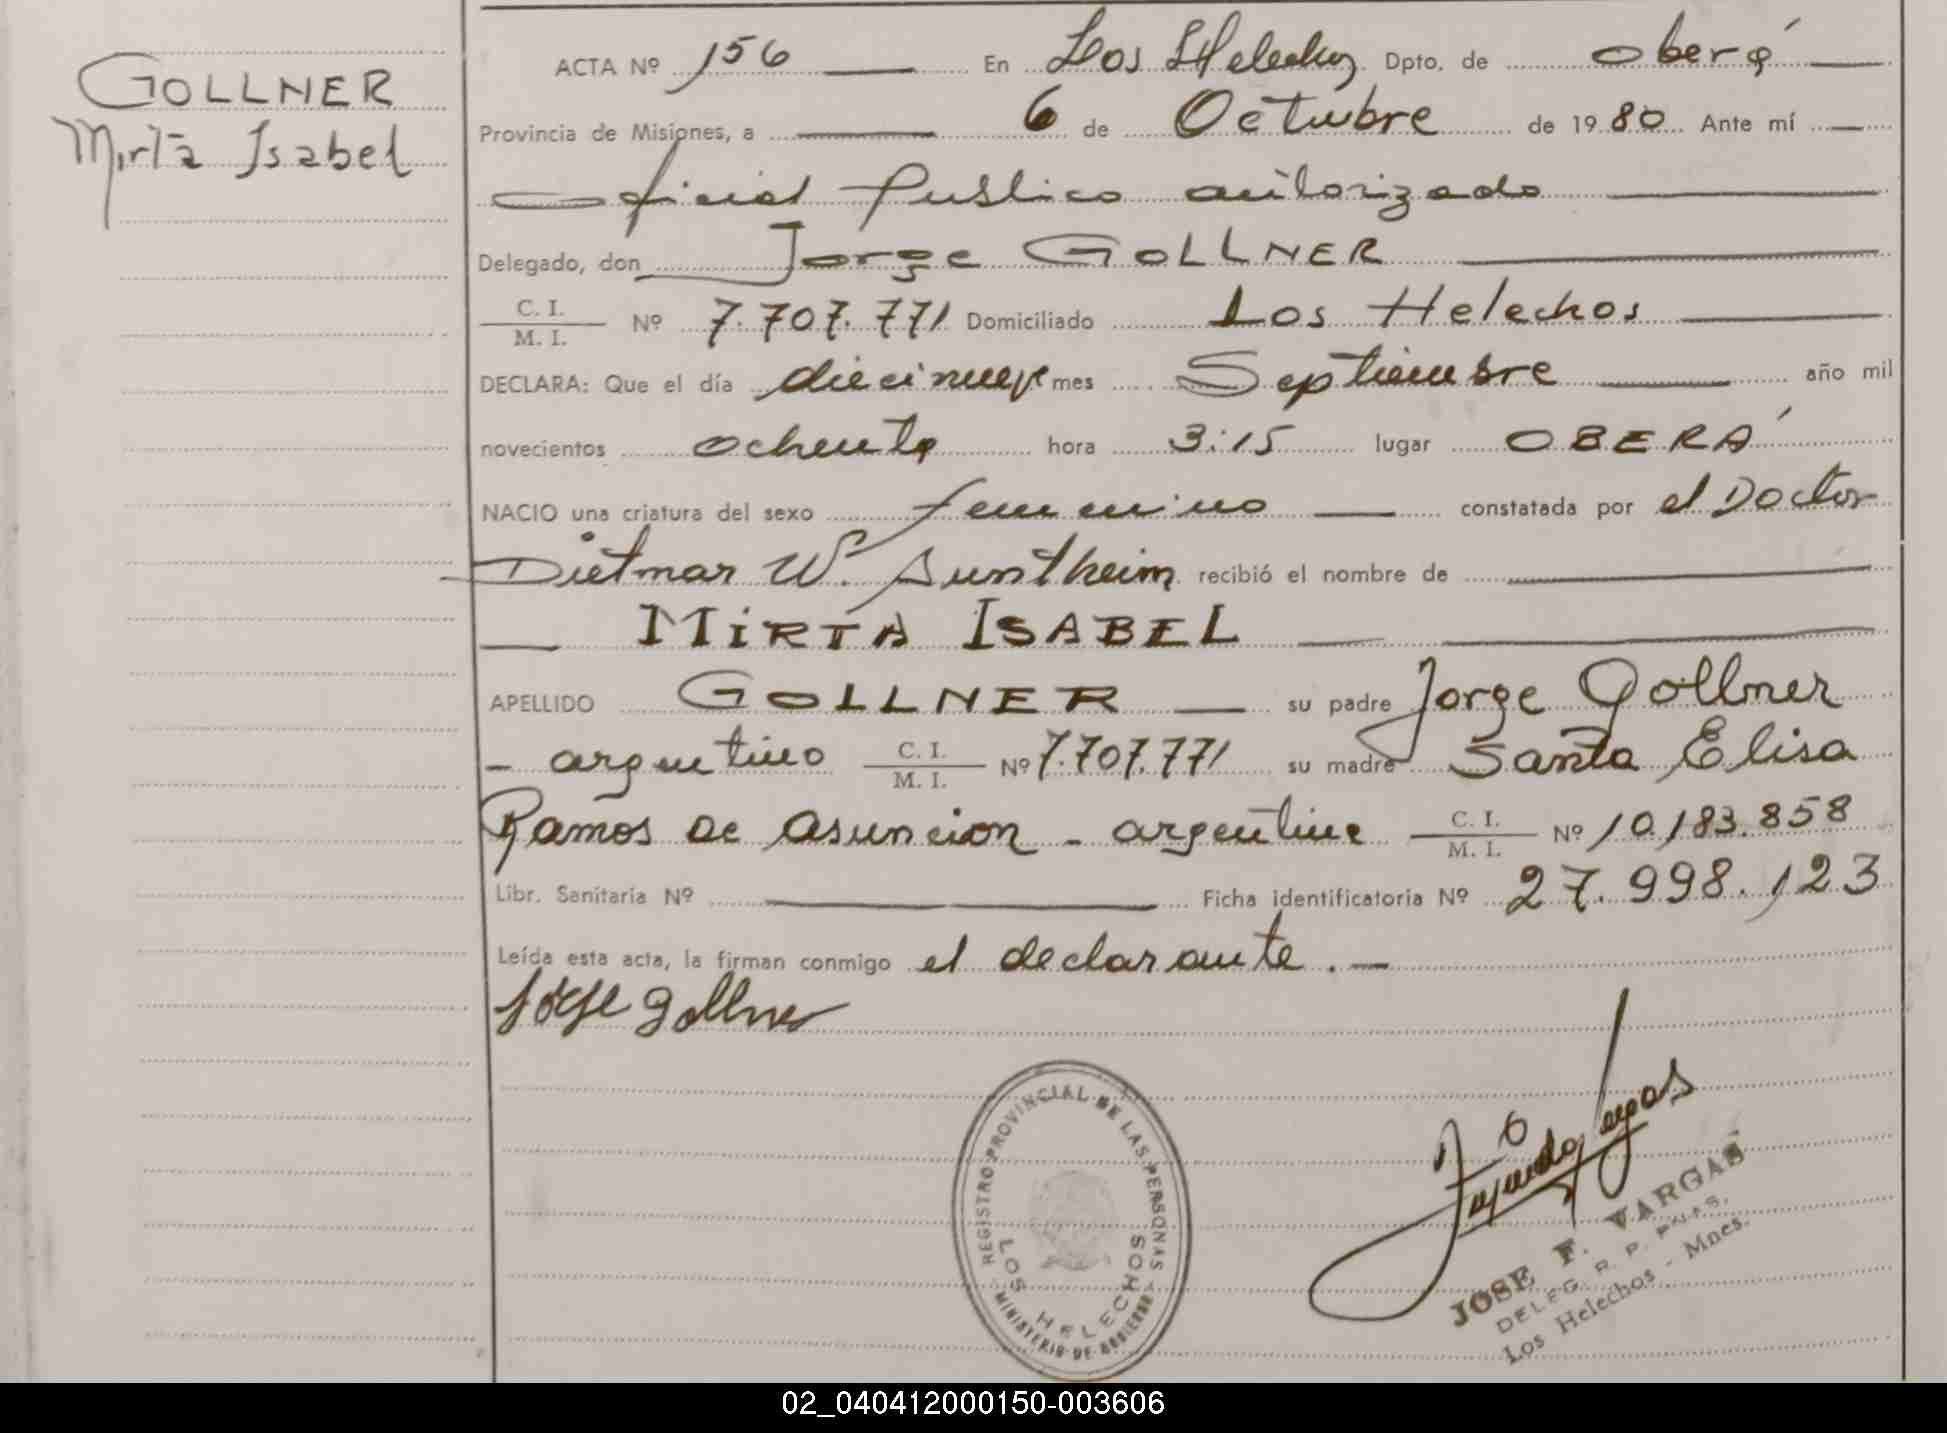 GOLLNER
Mirta Isabel
ACTA Nº 156 En Los Helechos Dpto. de Oberá
Provincia de Misiones, a 6 de Octubre de 1980 Ante mí
Oficial Publico autorizado
Delegado, don Jorge GOLLNER
C. I.
M. I. Nº 7.707.771 Domiciliado Los Helechos
DECLARA: Que el día diecinueve mes Septiembre año mil
novecientos ochenta hora 3:15 lugar OBERÁ
NACIO una criatura del sexo femenino constatada por el Doctor
Dietmar W. Suntheim recibió el nombre de
MIRTA ISABEL
APELLIDO GOLLNER su padre Jorge Gollner
- argentino C. I. M. I. Nº 7.707.771 su madre Santa Elisa
Ramos de asuncion - argentina C. I. M. I. Nº 10.183.858
Libr. Sanitaria Nº Ficha identificatoria Nº 27.998.123
Leída esta acta, la firman conmigo el declarante. -
Jorge Gollner
REGISTRO PROVINCIAL DE LAS PERSONAS
LOS HELECHOS
MINISTERIO DE GOBIERNO
JOSE F. VARGAS
DELEG. R. P. PNAS.
Los Helechos - Mnes.
02_040412000150-003606